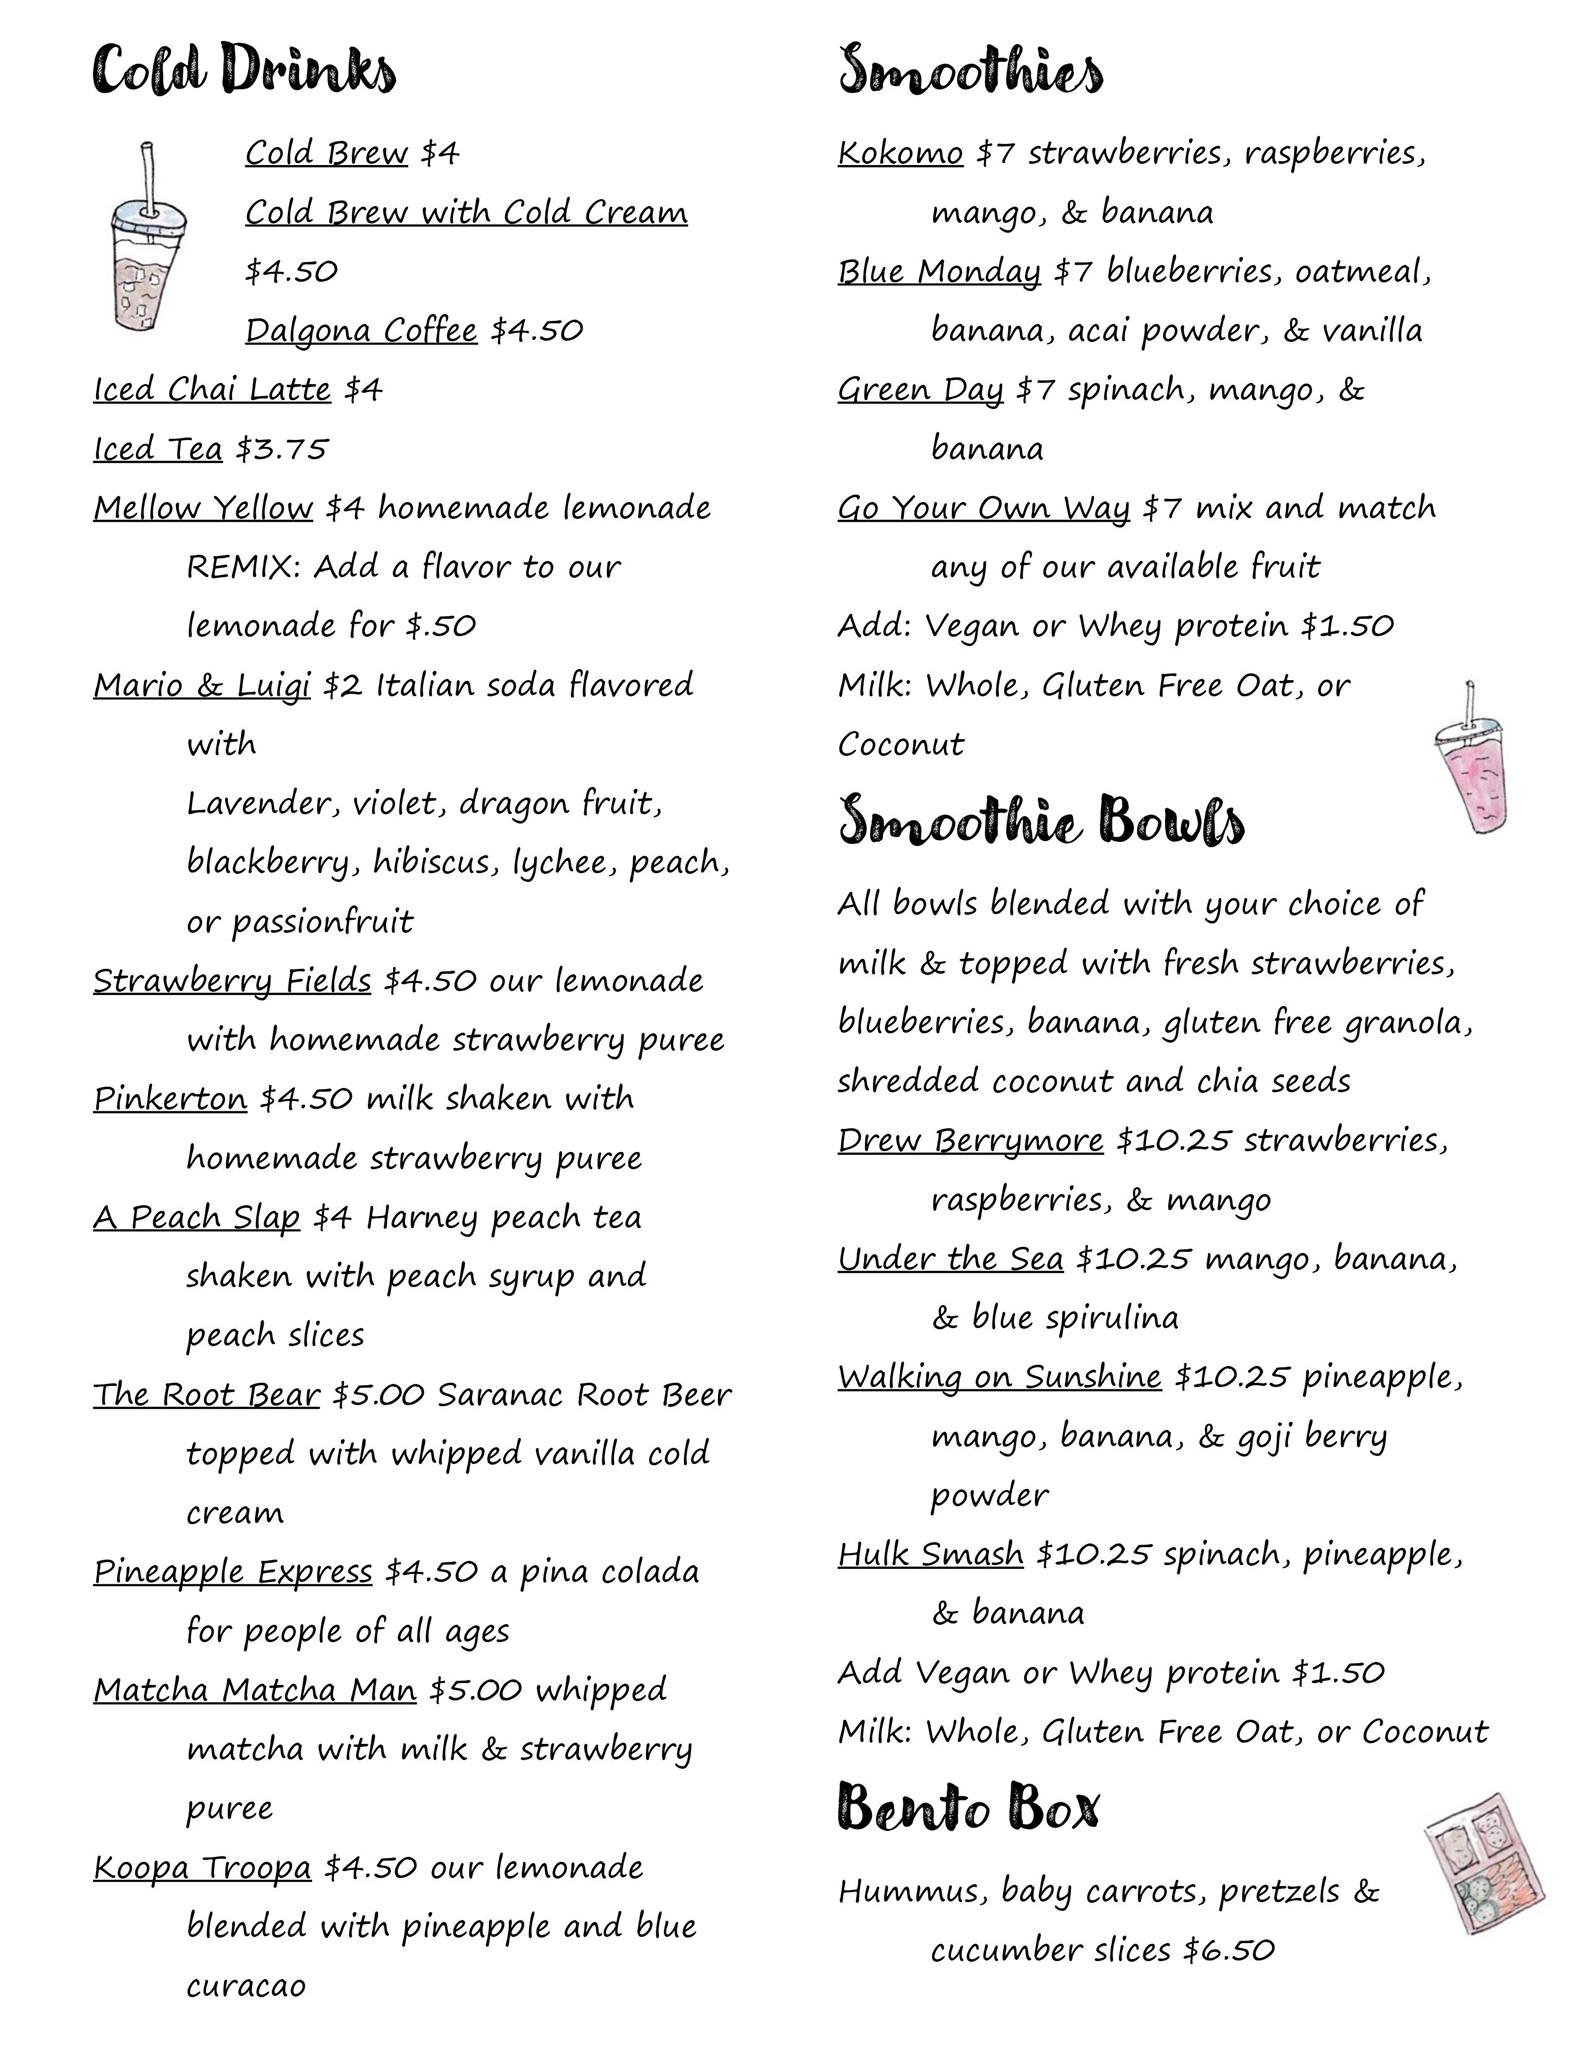 Cold Drinks
Cold Brew $4
Cold Brew with Cold Cream
$4.50
Dalgona Coffee $4.50
Iced Chai Latte $4
Iced Tea $3.75
Mellow Yellow $4 homemade lemonade
REMIX: Add a flavor to our
lemonade for $.50
Mario & Luigi $2 Italian soda flavored
with
Lavender, violet, dragon fruit,
blackberry, hibiscus, lychee, peach,
or passionfruit
Strawberry Fields $4.50 our lemonade
with homemade strawberry puree
Pinkerton $4.50 milk shaken with
homemade strawberry puree
A Peach Slap $4 Harney peach tea
shaken with peach syrup and
peach slices
The Root Bear $5.00 Saranac Root Beer
topped with whipped vanilla cold
cream
Pineapple Express $4.50 a pina colada
for people of all ages
Matcha Matcha Man $5.00 whipped
matcha with milk & strawberry
puree
Koopa Troopa $4.50 our lemonade
blended with pineapple and blue
curacao
Smoothies
Kokomo $7 strawberries, raspberries,
mango, & banana
Blue Monday $7 blueberries, oatmeal,
banana, acai powder, & vanilla
Green Day $7 spinach, mango, &
banana
Go Your Own Way $7 mix and match
any of our available fruit
Add: Vegan or Whey protein $1.50
Milk: Whole, Gluten Free Oat, or
Coconut
Smoothie Bowls
All bowls blended with your choice of
milk & topped with fresh strawberries,
blueberries, banana, gluten free granola,
shredded coconut and chia seeds
Drew Berrymore $10.25 strawberries,
raspberries, & mango
Under the Sea $10.25 mango, banana,
& blue spirulina
Walking on Sunshine $10.25 pineapple,
mango, banana, & goji berry
powder
Hulk Smash $10.25 spinach, pineapple,
& banana
Add Vegan or Whey protein $1.50
Milk: Whole, Gluten Free Oat, or Coconut
Bento Box
Hummus, baby carrots, pretzels &
cucumber slices $6.50